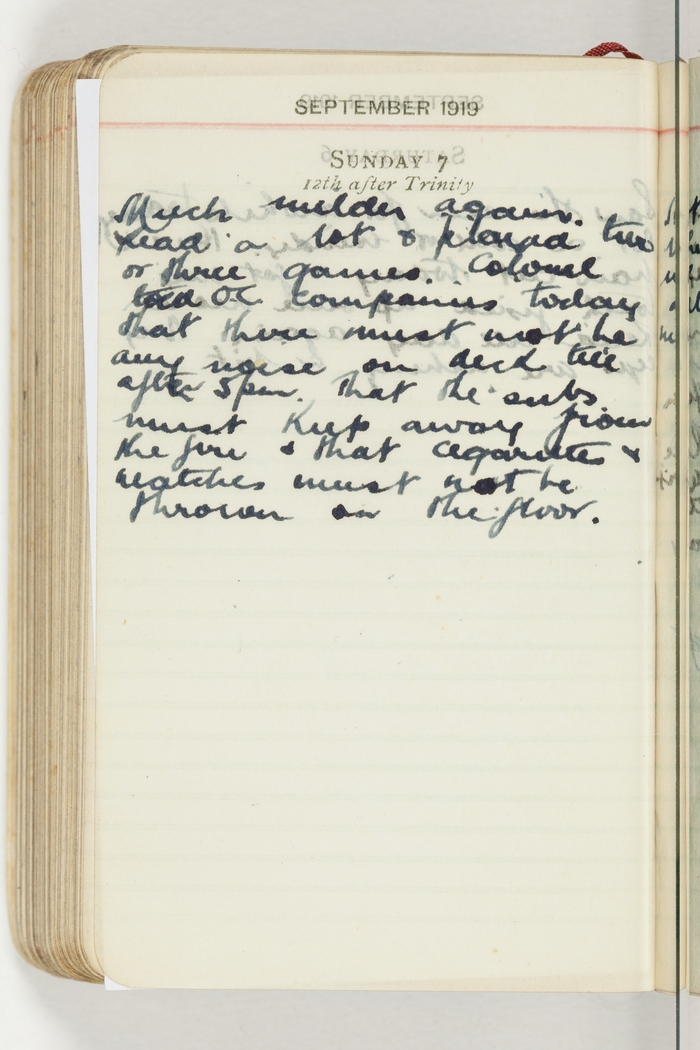 SEPTEMBER 1919
SUNDAY 7
12th after Trinity
Much milder again.
Read a lot & played two
or three games. Colonel
told OC companies today
that there must not be
any noise on deck till
after 5 pm. That the subs
must keep away from
the fire & that cigarettes &
matches must not be
thrown on the floor.